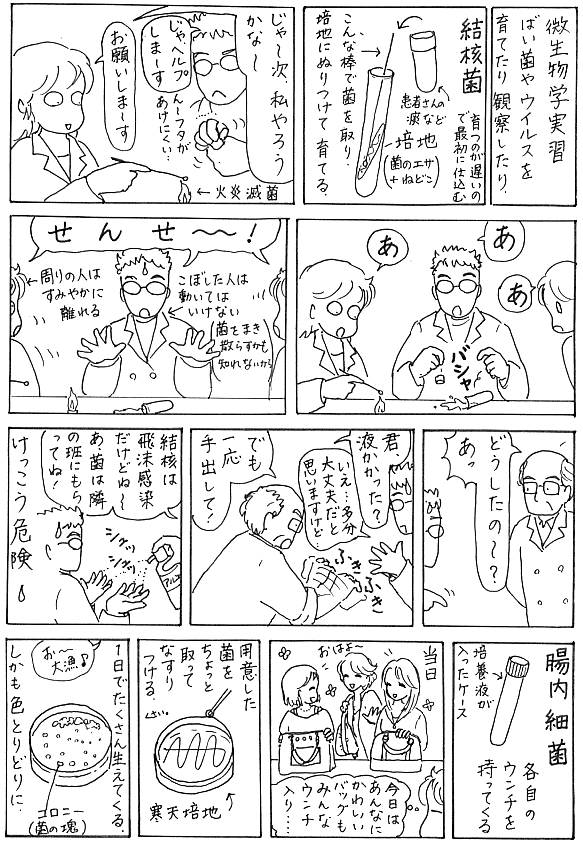 微生物学実習
ばい菌やウイルスを
育てたり観察したり。
結核菌
育つのが遅いの
で最初に仕込む
患者さんの
痰など
培地
(菌のエサ
+ねどこ)
こんな棒で菌を取り、
培地にぬりつけて育てる。
じゃ〜次、私やろう
かな〜
じゃヘルプ
しま〜す
ん〜フタが
あけにくい…
お願いしま〜す
←火炎滅菌
あ
あ
あ
バシャ
せんせ〜〜!
こぼした人は
動いては
いけない
(菌をまき
散らすかも
知れないから)
←周りの人は
すみやかに
離れる
どうしたの〜?
あっ
君、
液かかった?
いえ…多分
大丈夫だと
思いますけど…
ふきふき
でも
一応
手出して?
結核は
飛沫感染
だけどね〜
あ菌は隣
の班にもら
ってね!
シュッ
シュッ
アル
けっこう危険
腸内細菌
培養液が
入ったケース
各自の
ウンチを
持ってくる
当日
おはよ〜
今日は
あんなに
かわいい
バッグも
みんな
ウンチ
入り…
用意した
菌を
ちょっと
取って
なすり
つける。
寒天培地
1日でたくさん生えてくる。
しかも色とりどりに。
お〜
大漁♪
コロニー
(菌の塊)